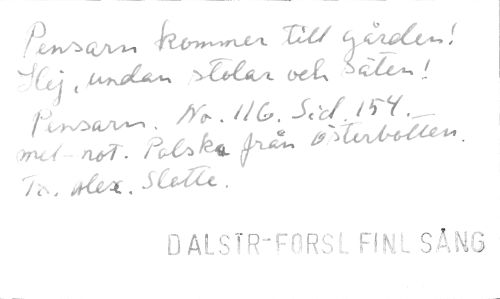 Pensarn kommer till gården!
Hej, undan stolar och säten!
Pensarn. No. 116. Sid. 154.
mel-not. Polska från Österbotten.
To. Alex. Slotte.
DALSTR-FORSL FINL SÅNG